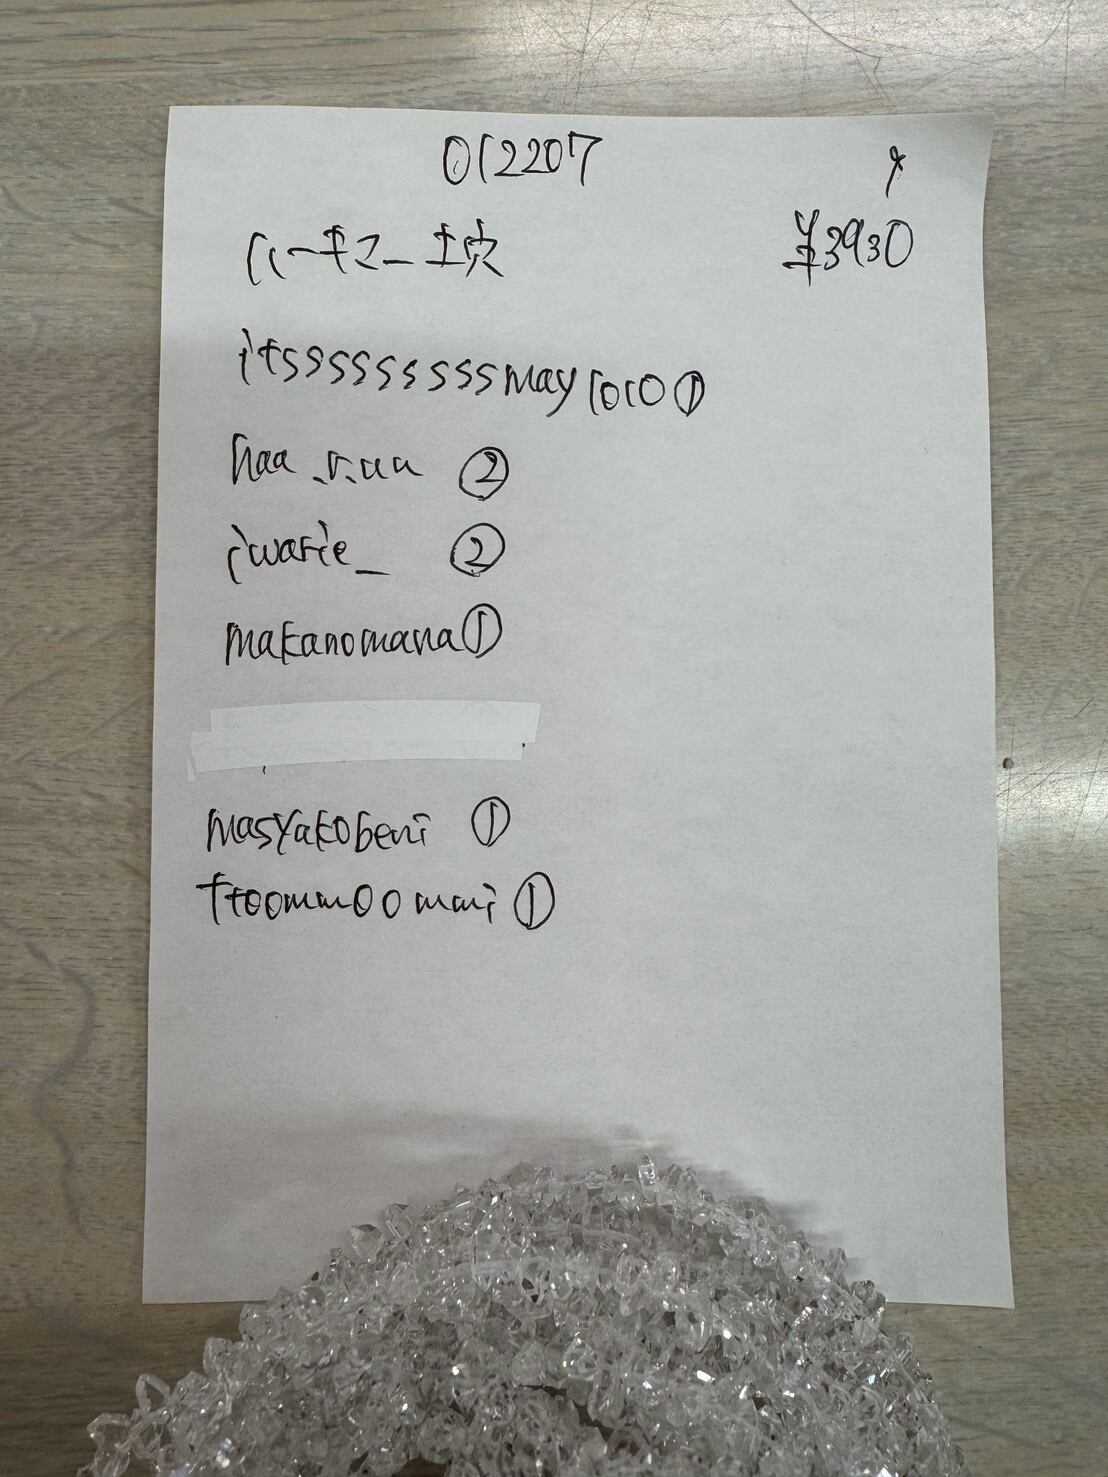 012207
¥3930
itsssssssssmay1010①
haa_r.uu ②
iwarie_ ②
makanomana①
masyakobeni ①
ttoommoommi①